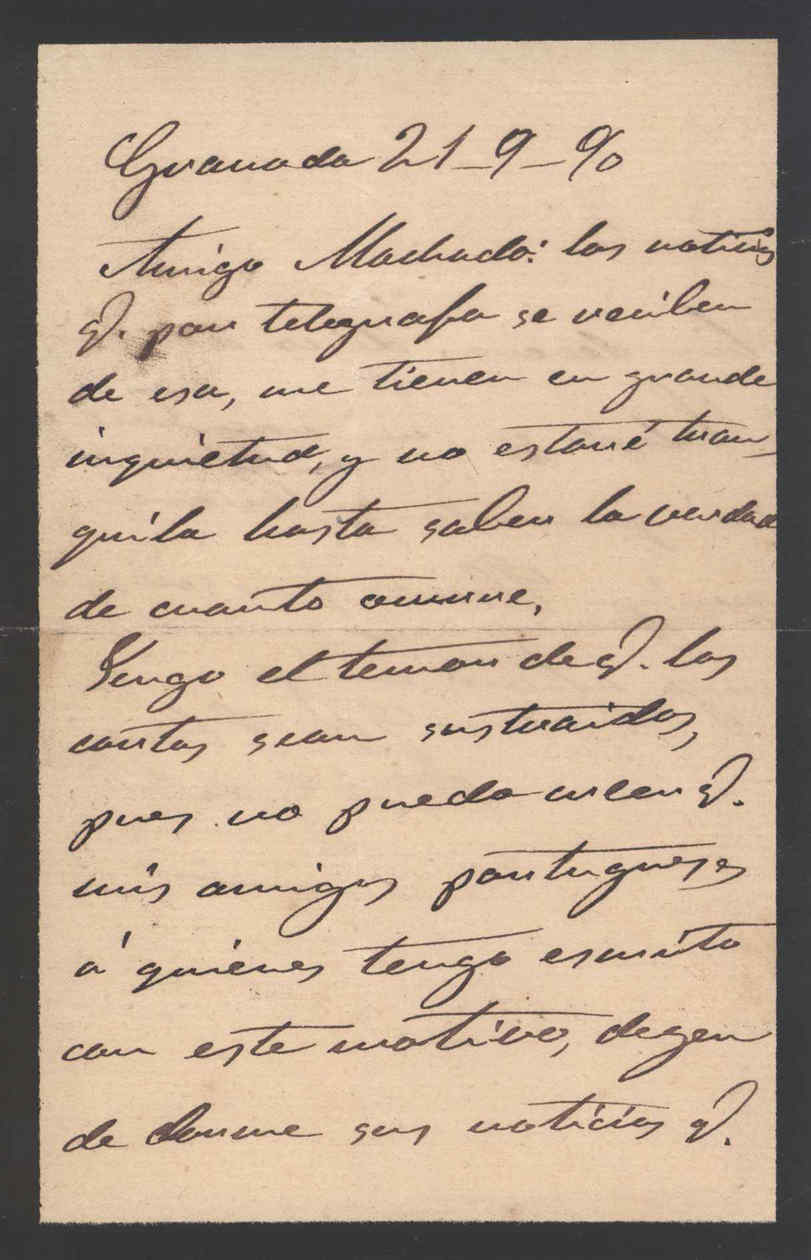 Granada 21-9-90
Amigo Machado: las noticias
q. por telegrafo se reciben
de esa, me tienen en grande
inquietud, y no estaré tran-
quila hasta saber la verdad
de cuanto ocurre.
Tengo el temor de q. las
cartas sean sustraidas,
pues no puedo creer q.
mis amigos portugueses
á quiénes tengo escrito
con este motivo, degen
de darme sus noticias q.